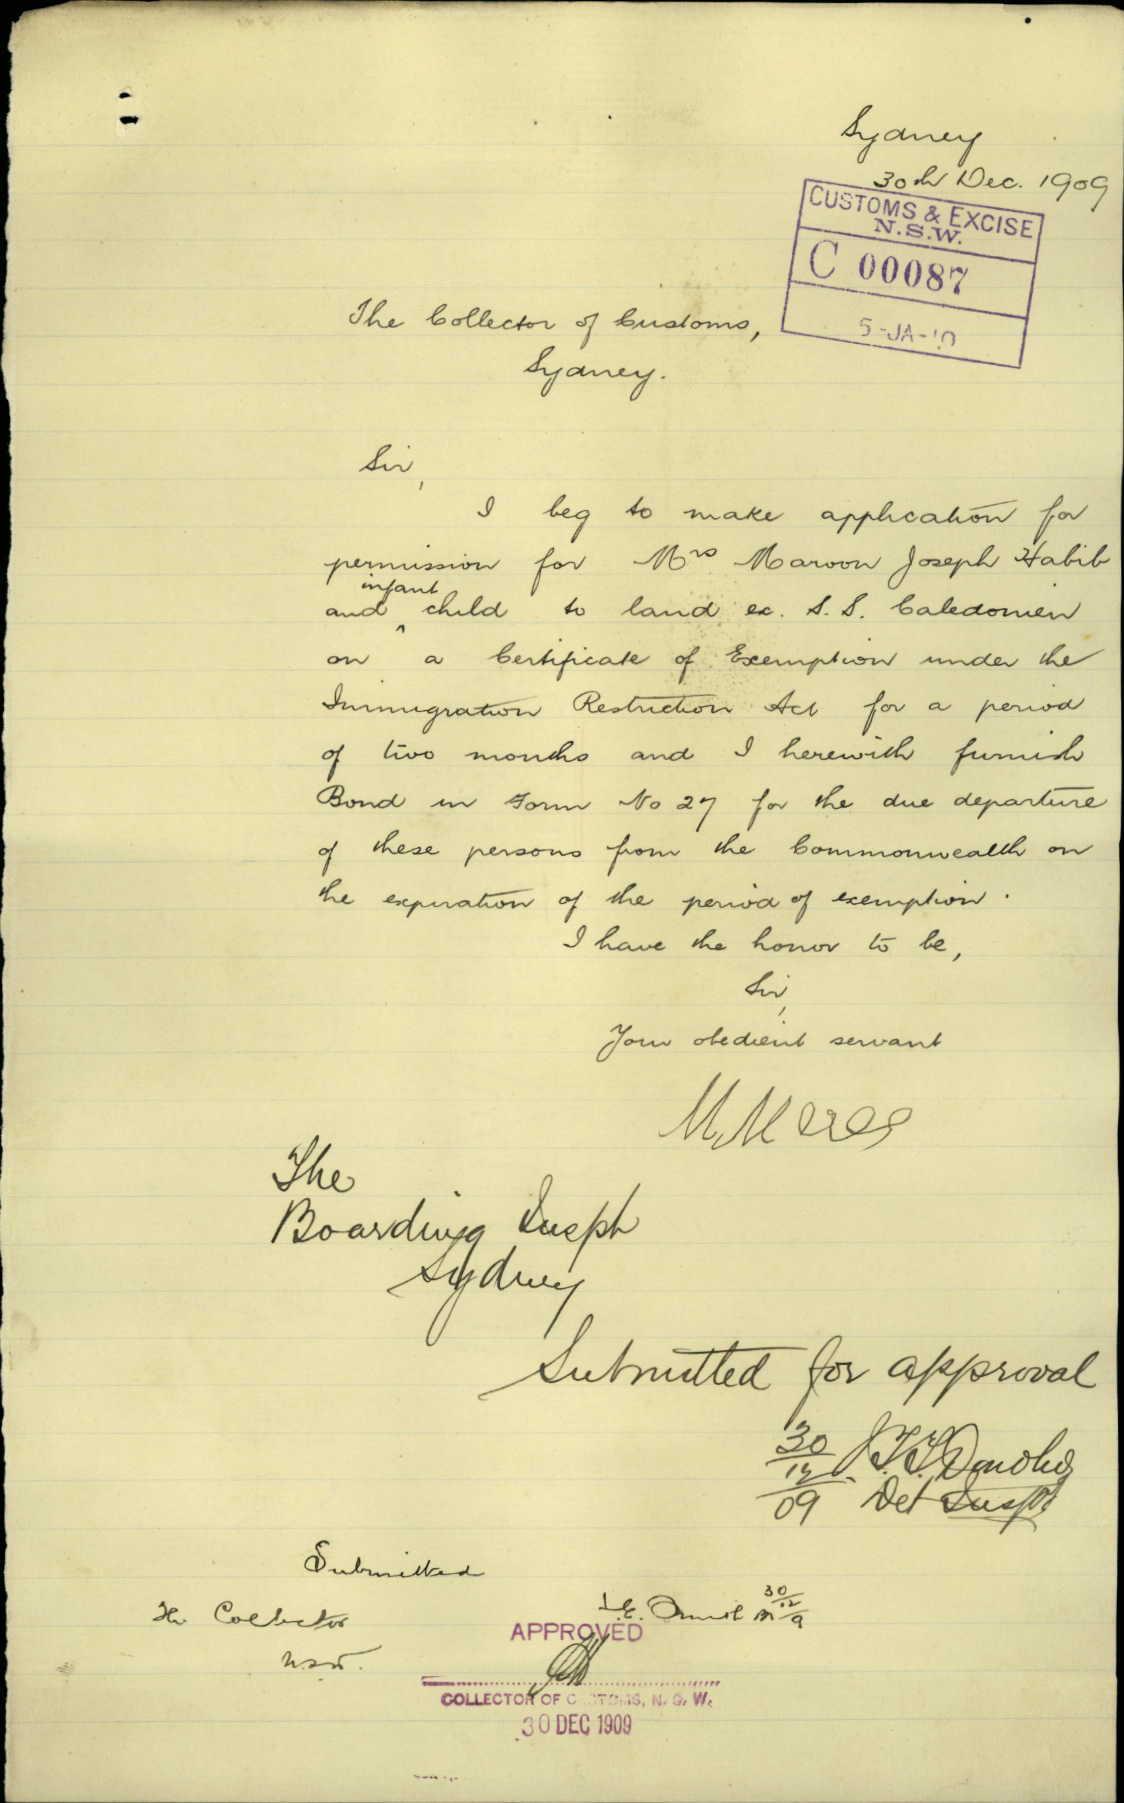 Sydney
30th Dec. 1909
CUSTOMS & EXCISE
N.S.W.
C 00087
5-JA-10
The Collector of Customs,
Sydney.
Sir,
I beg to make application for
permission for Mrs Maroon Joseph Habib
and infant child to land ex. S. S. Caledonien
on a Certificate of Exemption under the
Immigration Restriction Act for a period
of two months and I herewith furnish
Bond in Form No 27 for the due departure
of these persons from the Commonwealth on
the expiration of the period of exemption.
I have the honor to be,
Sir,
Your obedient servant
The
Boarding Inspr
Sydney
Submitted for approval
30/12/09 Donohoe
Det Inspr
Submitted
The Collector
N.S.W.
30/12/9
APPROVED
COLLECTOR OF CUSTOMS, N. S. W.
30 DEC 1909